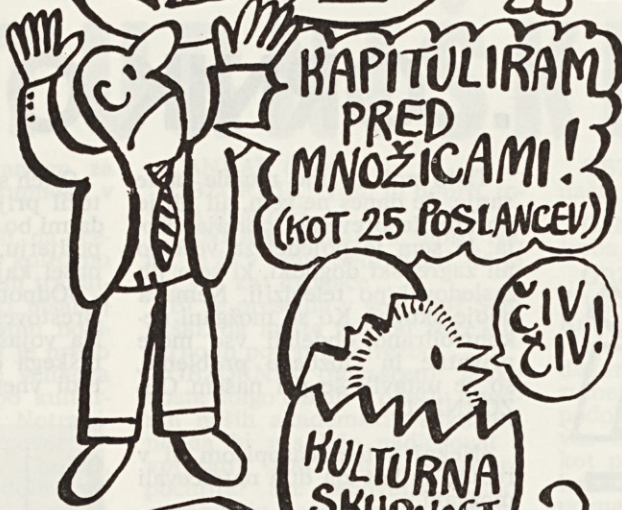 KAPITULIRAM
PRED
MNOŽICAMI!
(KOT 25 POSLANCEV)
ČIV
ČIV!
KULTURNA
SKUPNOST